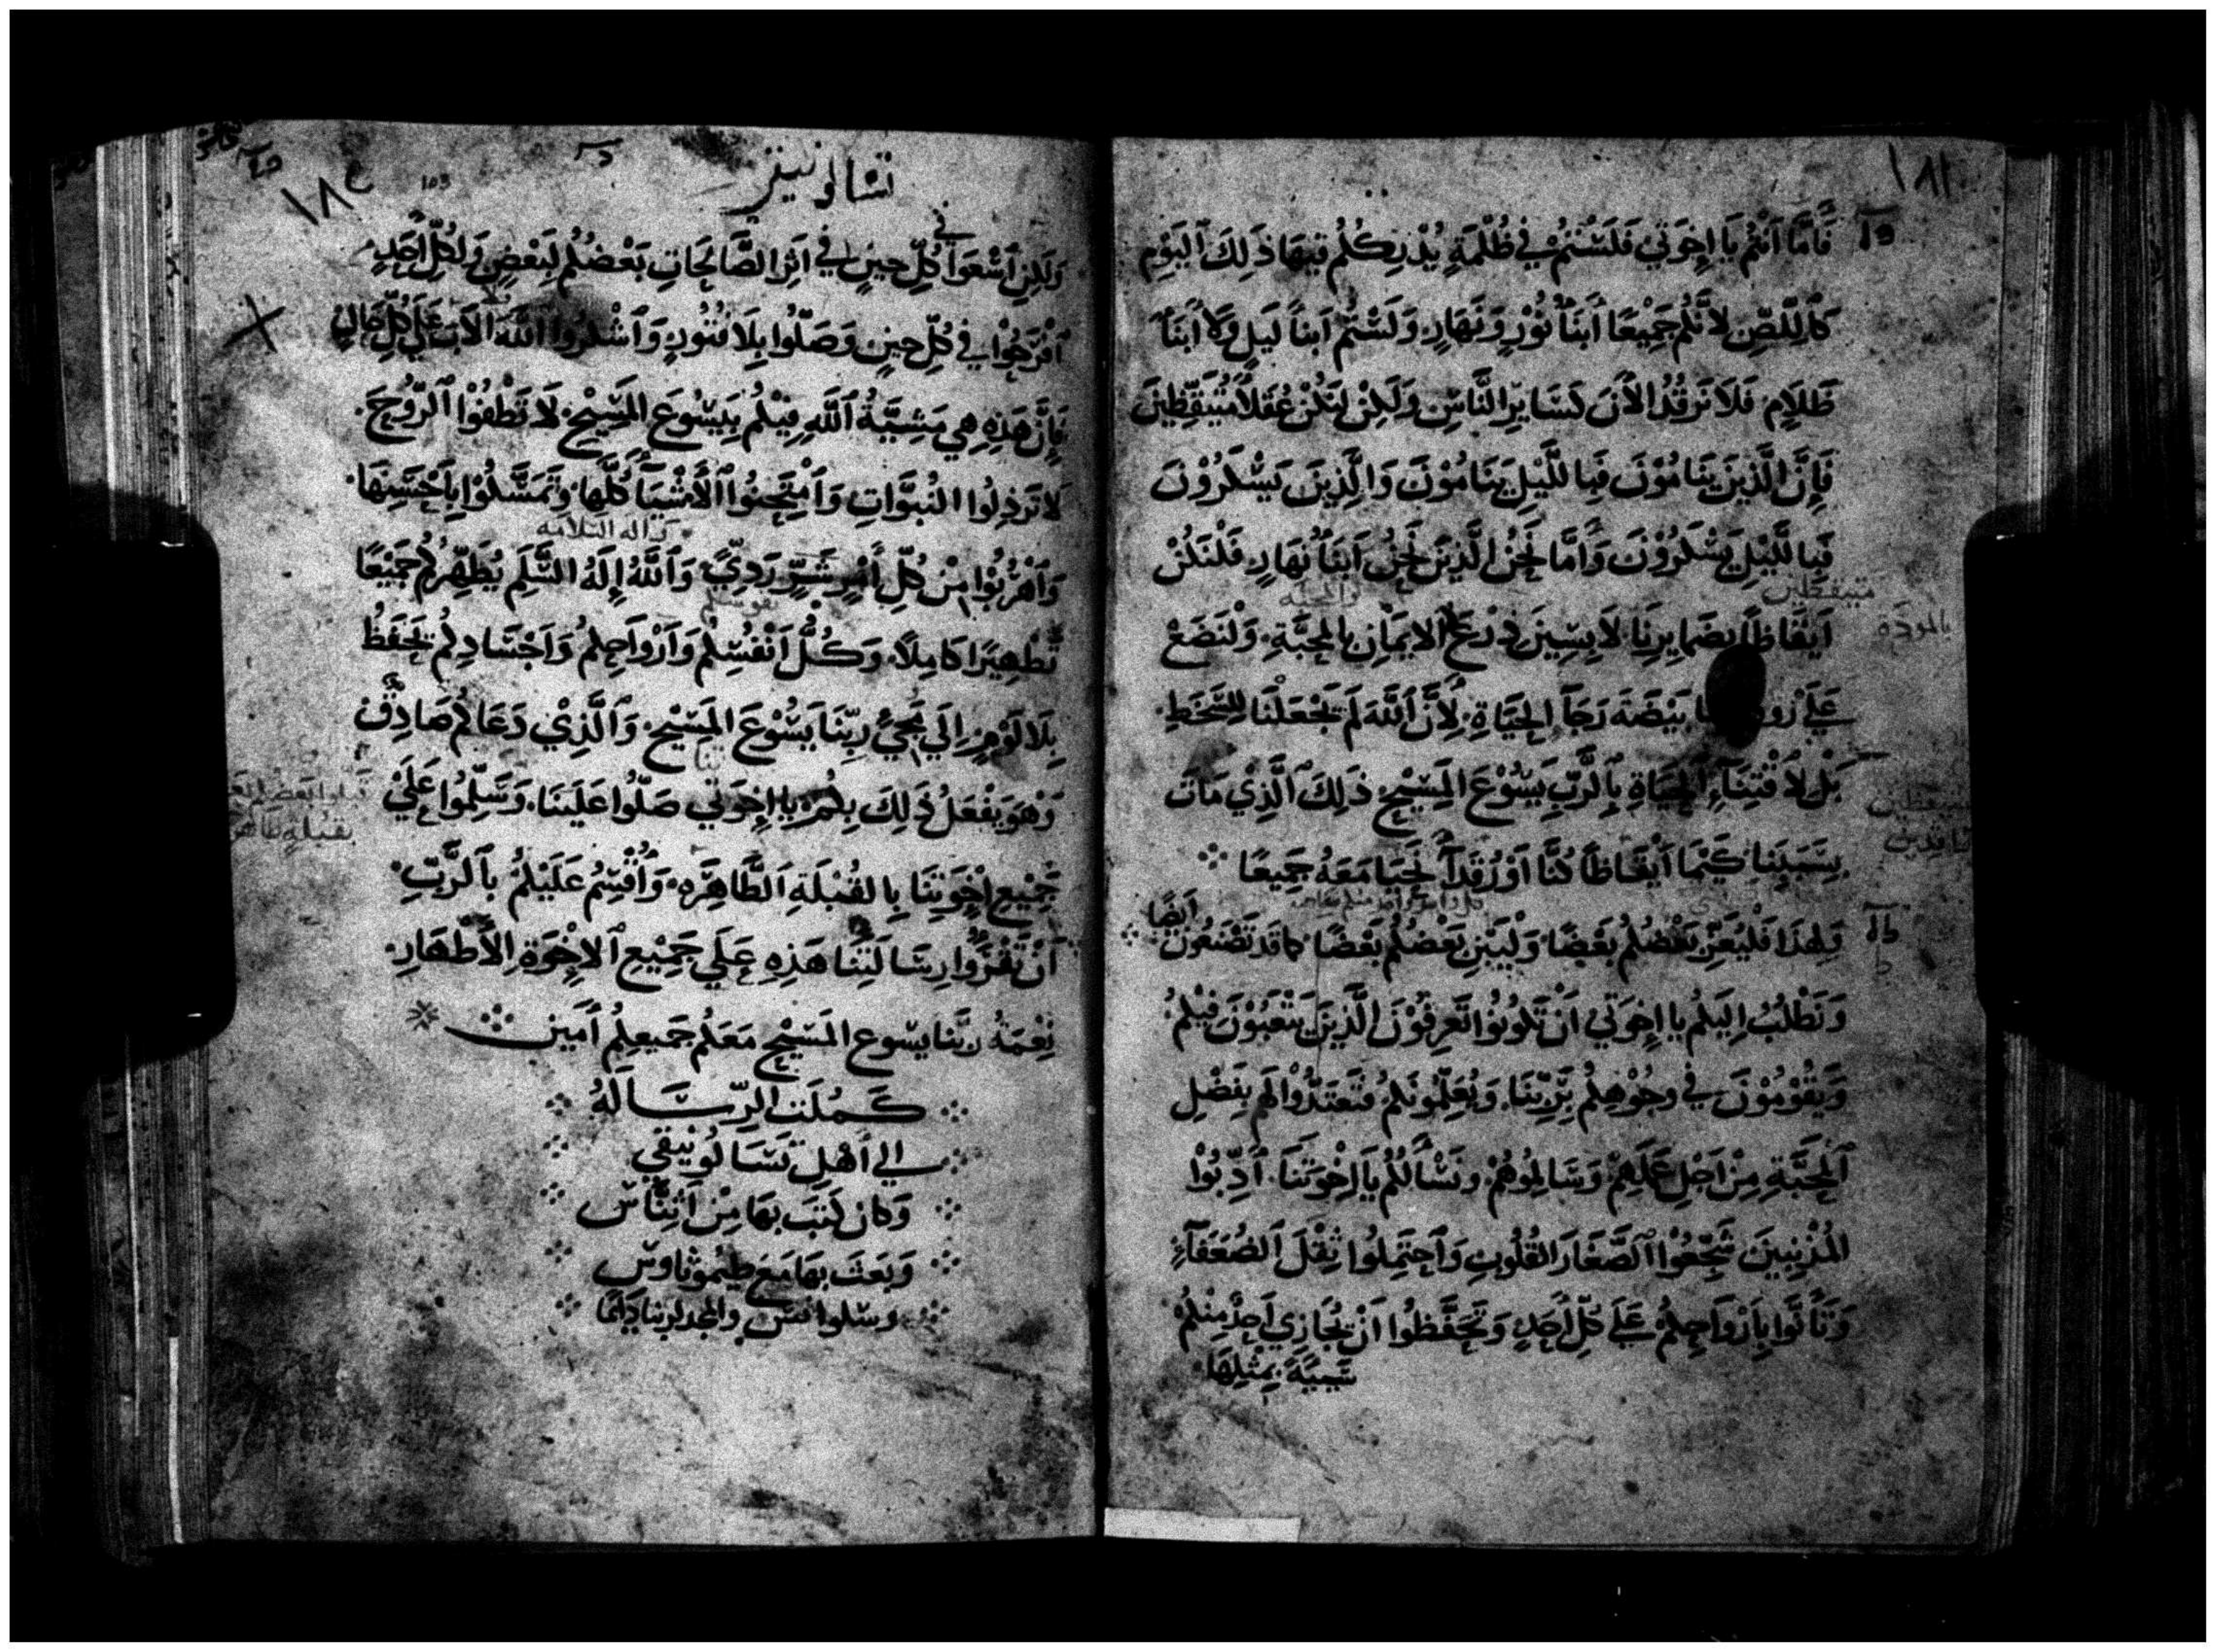 ١٨١
فَأَمَّا أَنْتُم يَا إِخْوَتِي فَلَسْتُمْ فِي ظُلْمَةٍ يُدْرِككُم فِيهَا ذَلِكَ اليَوْمِ
كَاللِّصِّ لأَنَّكُم جَمِيْعًا أَبنَاءُ نُوْرٍ وَنَهَارٍ وَلَسْتُم أَبنَاءَ لَيلٍ وَلاَ أَبنَاءَ
ظَلاَمٍ فَلاَ نَرقُدُ الأَنَ كَسَايِرِ النَّاسِ وَلَكِنْ لِنَكُنْ عُقَلاَ مُتَيَقِّظِينَ
فَإِنَّ الَّذِينَ يَنَامُوْنَ فَبِاللَّيلِ يَنَامُوْنَ وَالَّذِينَ يَسْكَرُوْنَ
فَبِاللَّيْلِ يَسْكَرُوْنَ وَأَمَّا نَحْنُ الَّذِينَ نَحْنُ أَبنَاءُ نَهَارٍ فَلْنَكُنْ
متيقظين
والمحبه
بالمودة
أَيْقَاظًا بِضَمَايِرِنَا لاَبِسِينَ دِرْعَ الايمَانِ بِالمَحَبَّةِ وَلْنَضَعْ
عَلَى بَيْضَةَ رَجَاءِ الحَيَاةِ لأَنَّ اللَّهَ لَم يَجْعَلْنَا لِلسَّخَطِ
بَلْ لاقْتِنَاءِ الحَيَاةِ بِالرَّبِّ يَسُوْعَ المَسِيْحِ ذَلِكَ الَّذِيْ مَاتَ
بِسَبَبِنَا كَيْمَا أَيْقَاظًا كُنَّا أَوْ رُقَدَاءَ نَحيَا مَعَهُ جَمِيعًا
أيضًا
وَلِهَذَا فَلْيُعَزِّ بَعْضُكُم بَعْضًا وَلْيَبْنِ بَعْضُكُم بَعْضًا كَمَا قَد تَصْنَعُونَ
وَنَطْلُبُ إِلَيكُم يَا إِخوَتِي أَنْ تَكُونُوا تَعرِفُوْنَ الَّذِينَ يَتْعَبُوْنَ فِيْكُم
وَيَقُوْمُوْنَ فِي وجُوْهِكُم بِرَبِّنَا وَيُعَلِّمُونَكُم فَتَعتَدُّوْا لَهُم بِفَضْلِ
المَحَبَّةِ مِنْ أَجلِ عَمَلِهِمْ وَسَالِمُوهُمْ وَنَسْأَلُكُم يَا إِخْوَتَنَا أَدِّبُوْا
المُذْنِبِينَ شَجِّعُوْا الصِّغَارَ القُلُوبِ وَاحتَمِلُوا ثِقْلَ الضُعَفَاءِ
وَتَأَنَّوا بِأَرْوَاحِكُم عَلَى كُلِّ أَحَدٍ وَتَحَفَّظُوا أَنْ يُجَازِي أَحَدٌ مِنْكُم
سَيِّئَةً بِمِثْلِهَا
١٨٤
103
تسالونيقي
فى
وَلَكِنِ اسْعَوا كُلِّ حِينٍ فِي أَثَرِ الصَّالِحَاتِ بَعْضُكُم لِبَعْضٍ وَلِكُلِّ أَحَدٍ
افْرَحُوْا فِي كُلِّ حِينٍ وَصَلُّوا بِلاَ فُتُورٍ وَاشْكُرُوا اللَّهَ الآبَ عَلَى كُلِّ حَالٍ
فَإِنَّ هَذِهِ هِي مَشِيَّةُ اللَّهِ فِيْكُم بِيَسُوعَ المَسِيْحِ لاَ تُطْفُوْا الرُّوْحَ
لاَ تَرذِلُوا النُبوَّاتِ وَامْتَحِنُوا الأَشْيَاءَ كُلَّهَا وَتَمَسَّكُوْا بِأَحْسَنِهَا
اله السلامه
وَاهْرُبُوْا مِنْ كُلِّ أَمْرٍ شَرٍّ رَدِيٍّ وَاللَّهُ إِلَهُ السَّلَمِ يُطَهِّرُكُم جَمِيْعًا
تَطْهِيْرًا كَامِلاً وَكُلَّ أَنْفُسِكُم وَأَرْوَاحِكُم وَأَجْسَادِكُم يَحفَظُ
بِلاَ لَوْمٍ إِلَى مَجِيْءِ رَبِّنَا يَسُوْعَ المَسِيْحِ وَالَّذِيْ دَعَاكُم صَادِقٌ
وَهْوَ يَفْعَلُ ذَلِكَ بِكُم يَا إِخوَتِي صَلُّوا عَلَيْنَا وَسَلِّمُوا عَلَيْ
جَمِيْعِ إِخْوَتِنَا بِالقُبْلَةِ الطَّاهِرَهِ وَأُقْسِمُ عَلَيْكُم بِالرَّبِّ
أَنْ تَقْرَؤُا رِسَالَتَنَا هَذِهِ عَلَي جَمِيْعِ الإِخْوَةِ الأَطْهَارِ
نِعْمَةُ رَبِّنَا يسُوع المَسِيْحِ مَعَكُم جَميعِكُم أَمِين
كَمُلَت الرِّسَالَةُ
إِلي أَهْلِ تَسَالُونِيقِي
وَكان كتَبَ بهَا مِنْ أَثِنَّاسَ
وَبَعَثَ بهَا مَعَ طِيْمُوثَاوسَ
وسلوانس والمجد لربنا دَائِمًا